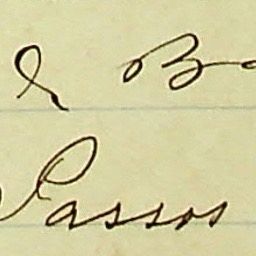 & B
Passos